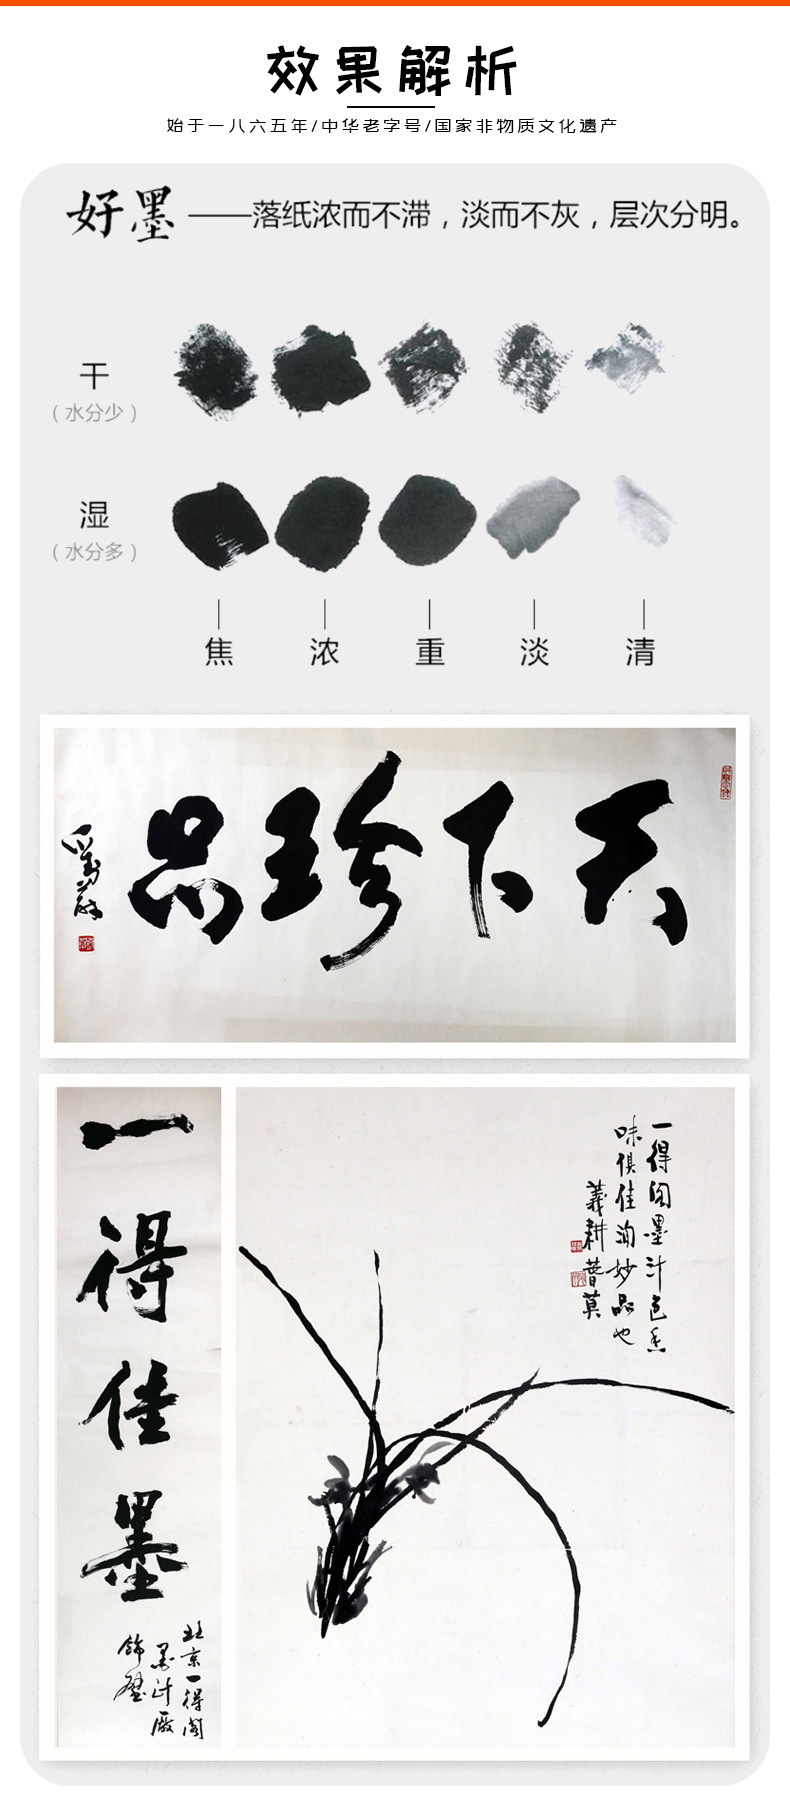 效果解析
始于一八六五年/中华老字号/国家非物质文化遗产
好墨——落纸浓而不滞，淡而不灰，层次分明。
干
（水分少）
湿
（水分多）
焦 浓 重 淡 清
天下珍品
一得佳墨
北京一得阁
墨汁厂
饰壁
一得阁墨汁色香
味俱佳洵妙品也